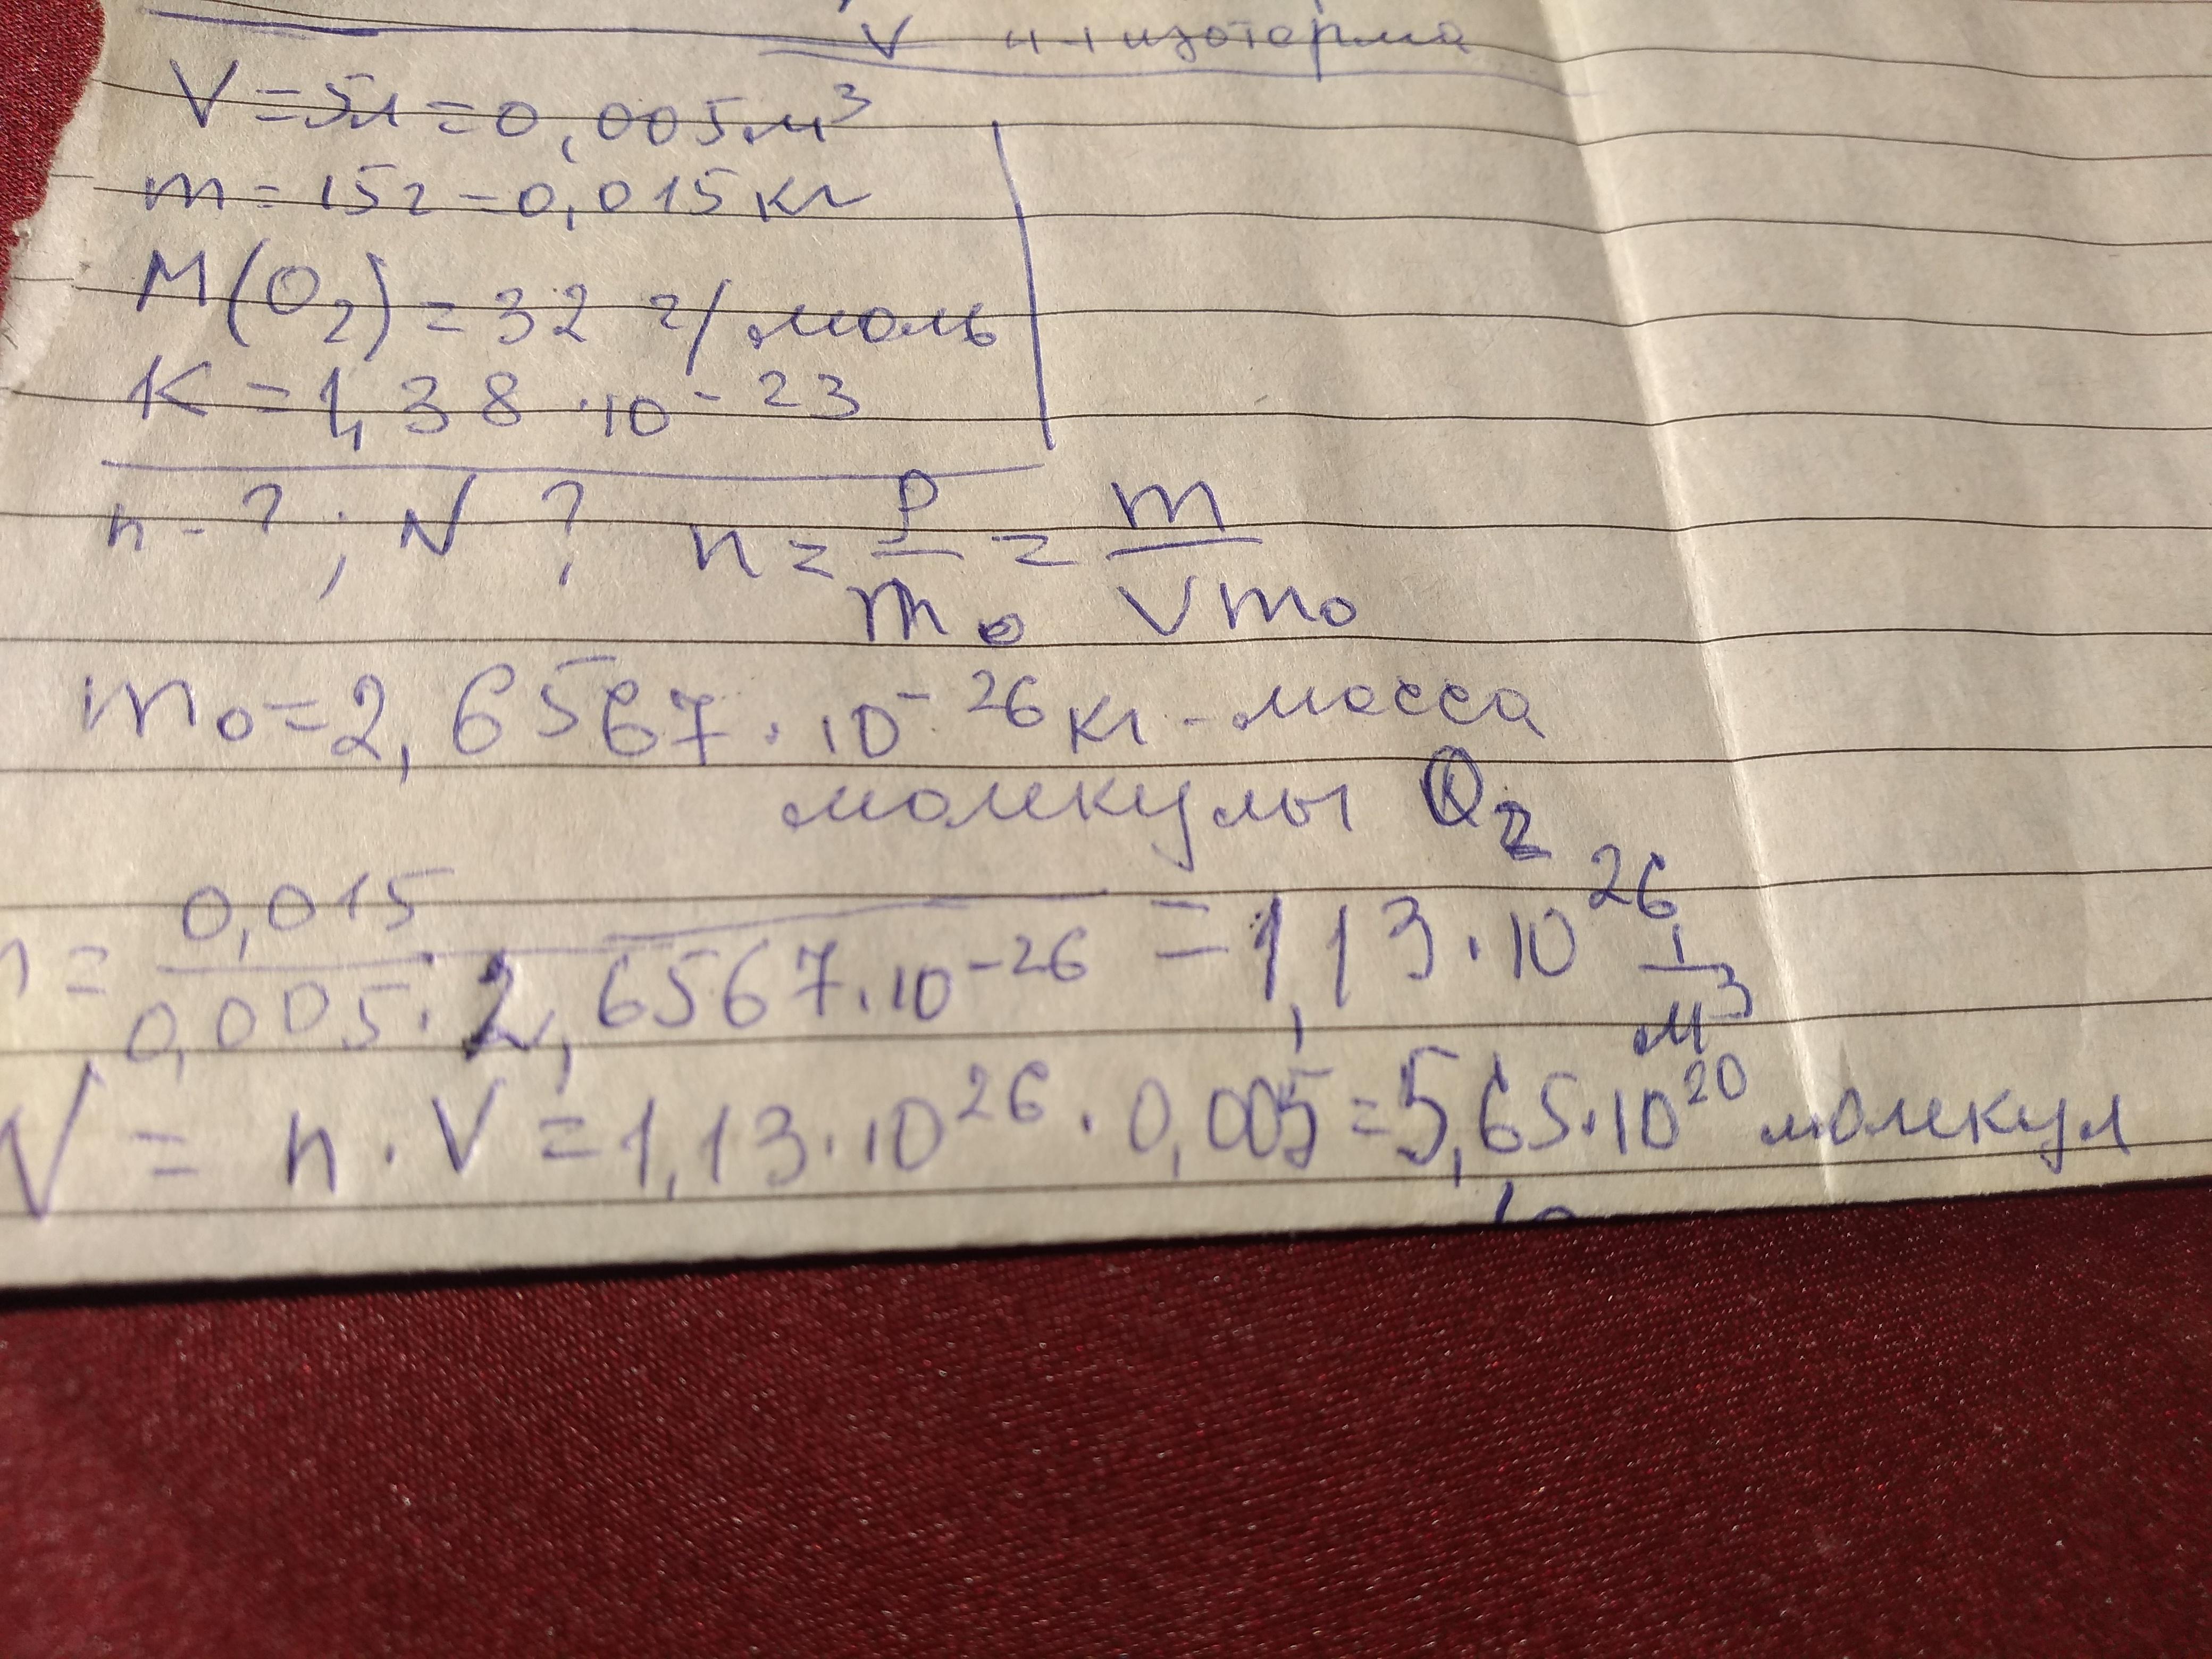 V изотерма
V = 5л = 0,005 м³
m = 15г = 0,015 кг
M(O₂) = 32 г/моль
K = 1,38 · 10⁻²³
n - ? ; N ? n = ρ/m₀ = m/Vm₀
m₀ = 2,6567 · 10⁻²⁶ кг - масса
молекулы O₂
n = 0,015/0,005 · 2,6567 · 10⁻²⁶ = 1,13 · 10²⁶ 1/м³
N = n · V = 1,13 · 10²⁶ · 0,005 = 5,65 · 10²⁰ молекул